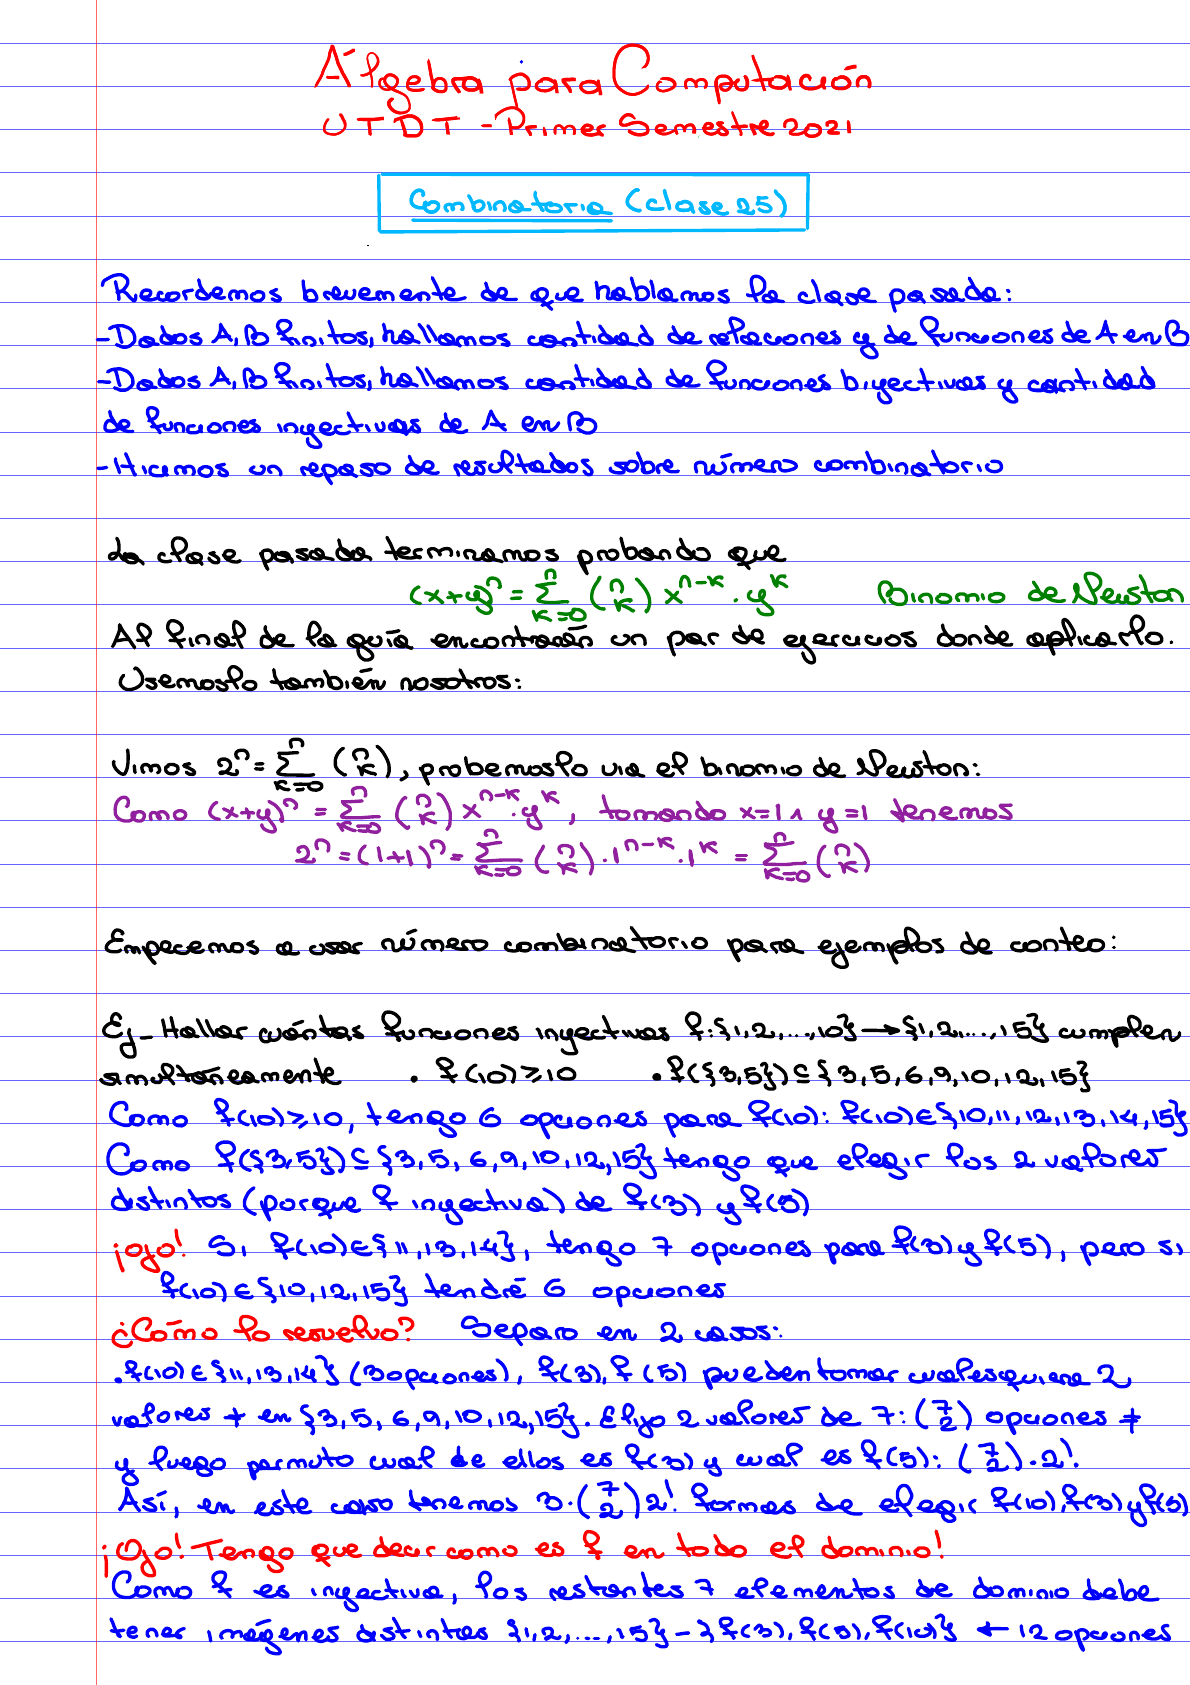 Álgebra para Computación
UTDT - Primer Semestre 2021
Combinatoria (clase 25)
Recordemos brevemente de que hablamos la clase pasada:
- Dados A, B finitos, hallamos cantidad de relaciones y de funciones de A en B
- Dados A, B finitos, hallamos cantidad de funciones biyectivas y cantidad
de funciones inyectivas de A en B
- Hicimos un repaso de resultados sobre número combinatorio
La clase pasada terminamos probando que
(x+y)^n = ∑_{k=0}^n (n k) x^{n-k} . y^k Binomio de Newton
Al final de la guía encontrarán un par de ejercicios donde aplicarlo.
Usemoslo también nosotros:
Vimos 2^n = ∑_{k=0}^n (n k), probemoslo via el binomio de Newton:
Como (x+y)^n = ∑_{k=0}^n (n k) x^{n-k} . y^k, tomando x=1 ∧ y=1 tenemos
2^n = (1+1)^n = ∑_{k=0}^n (n k) . 1^{n-k} . 1^k = ∑_{k=0}^n (n k)
Empecemos a usar número combinatorio para ejemplos de conteo:
Ej - Hallar cuántas funciones inyectivas f:{1,2,...,10} → {1,2,...,15} cumplen
simultáneamente . f(10) ≥ 10 . f({3,5}) ⊆ {3,5,6,9,10,12,15}
Como f(10) ≥ 10, tengo 6 opciones para f(10): f(10) ∈ {10,11,12,13,14,15}
Como f({3,5}) ⊆ {3,5,6,9,10,12,15} tengo que elegir los 2 valores
distintos (porque f inyectiva) de f(3) y f(5)
¡Ojo! Si f(10) ∈ {11,13,14}, tengo 7 opciones para f(3) y f(5), pero si
f(10) ∈ {10,12,15} tendré 6 opciones
¿Cómo lo resuelvo? Separo en 2 casos:
. f(10) ∈ {11,13,14} (3 opciones), f(3), f(5) pueden tomar cualesquiera 2
valores ≠ en {3,5,6,9,10,12,15}. Elijo 2 valores de 7: (7 2) opciones ≠
y luego permuto cual de ellos es f(3) y cual es f(5): (7 2) . 2!.
Así, en este caso tenemos 3 . (7 2) 2! formas de elegir f(10), f(3) y f(5)
¡Ojo! Tengo que decir como es f en todo el dominio!
Como f es inyectiva, los restantes 7 elementos de dominio debe
tener imágenes distintas {1,2,...,15} - {f(3), f(5), f(10)} ← 12 opciones